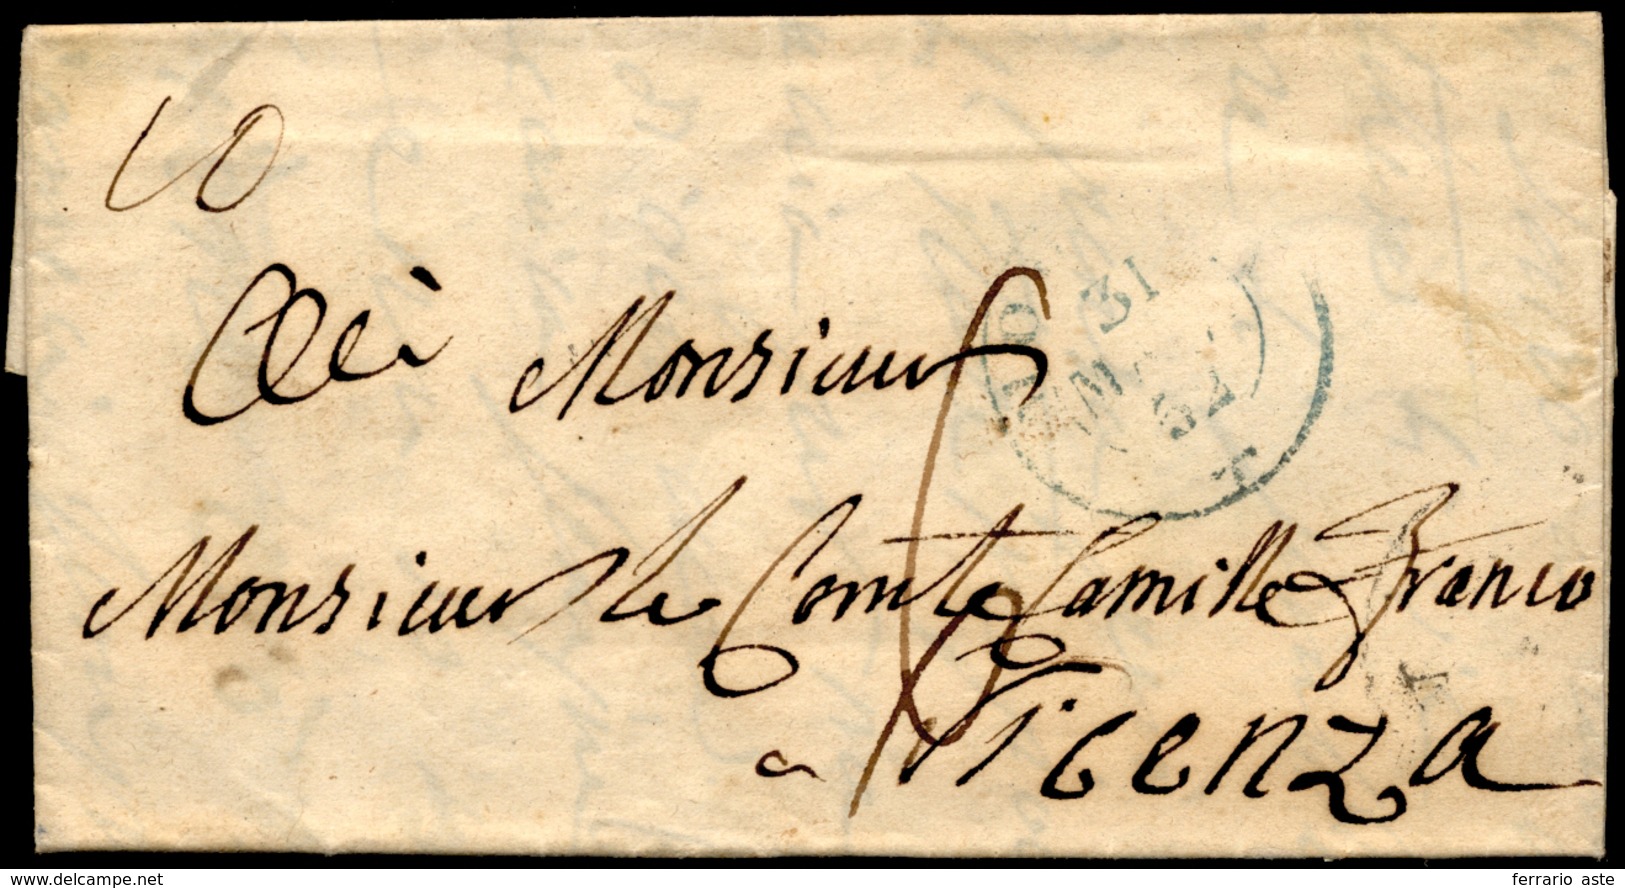 10
A Monsieur
31
52
Monsieur le Comte Camille Franco
a Vicenza
www.delcampe.net
ferrario aste